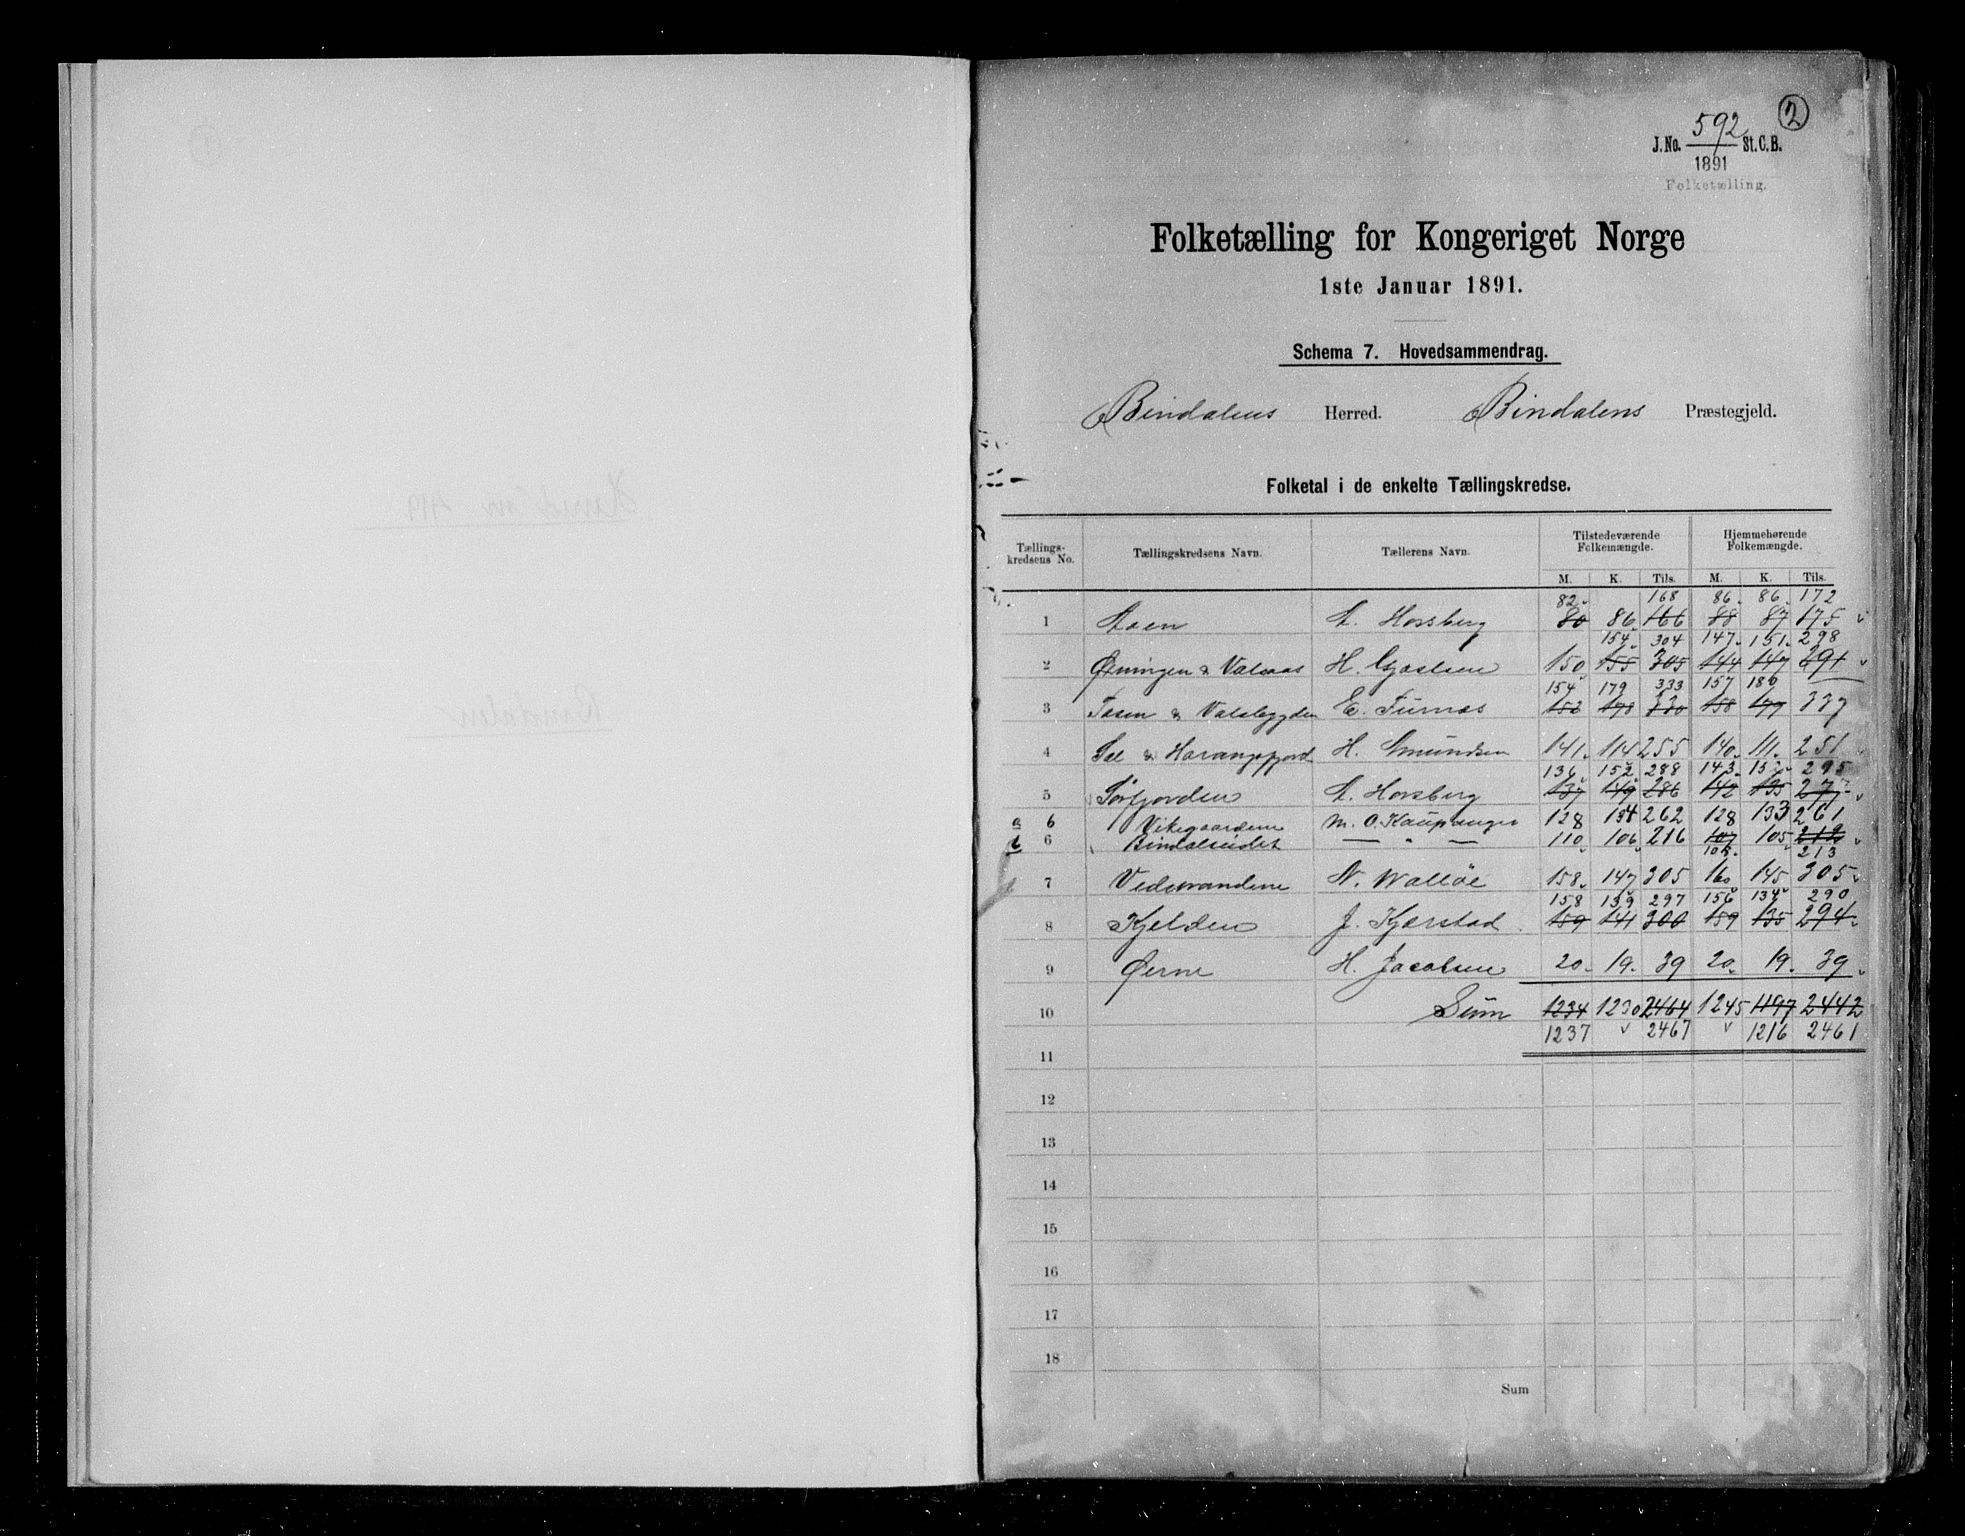 2
J. No. 592 St. C. B.
1891
Folketælling.
Folketælling for Kongeriget Norge
1ste Januar 1891.
Schema 7. Hovedsammendrag.
Bindalens Herred. Bindalens Præstegjeld.
Folketal i de enkelte Tællingskredse.
Tællings-kredsens No. Tællingskredsens Navn. Tællerens Navn. Tilstedeværende Folkemængde. Hjemmehørende Folkemængde.
M. K. Tils. M. K. Tils.
82 168 86 86 172
1 Aaen A. Horsberg 80 86 166 88 87 175
154 304 147 151 298
2 Øiningen & H. 150 155 305 144 147 291
154 179 333 157 180
3 & E. Furnæs 152 178 330 158 177 337
4 Sel & Harangsfjord H. Amundsen 141 114 255 140 111 251
136 152 288 143 152 295
5 Sørfjorden A. Horsberg 137 149 286 142 135 277
a 6 Vikegaardene M. O. Kaupanger 128 134 262 128 133 261
b 6 Bindalseidet — " — 110 106 216 107 105 212
213
7 N. Walløe 158 147 305 160 145 305
158 139 297 156 134 290
8 Kjelden J. Kjærstad 159 141 300 159 135 294
9 Øerne H. Jacobsen 20 19 39 20 19 39
10 Sum 1234 1230 2464 1245 1197 2442
1237 2467 1216 2461
11
12
13
14
15
16
17
18
Sum